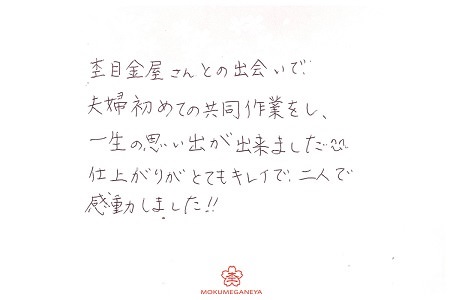 杢目金屋さんとの出会いで
夫婦初めての共同作業をし、
一生の思い出が出来ました
仕上がりがとてもキレイで、二人で
感動しました!!
MOKUMEGANEYA